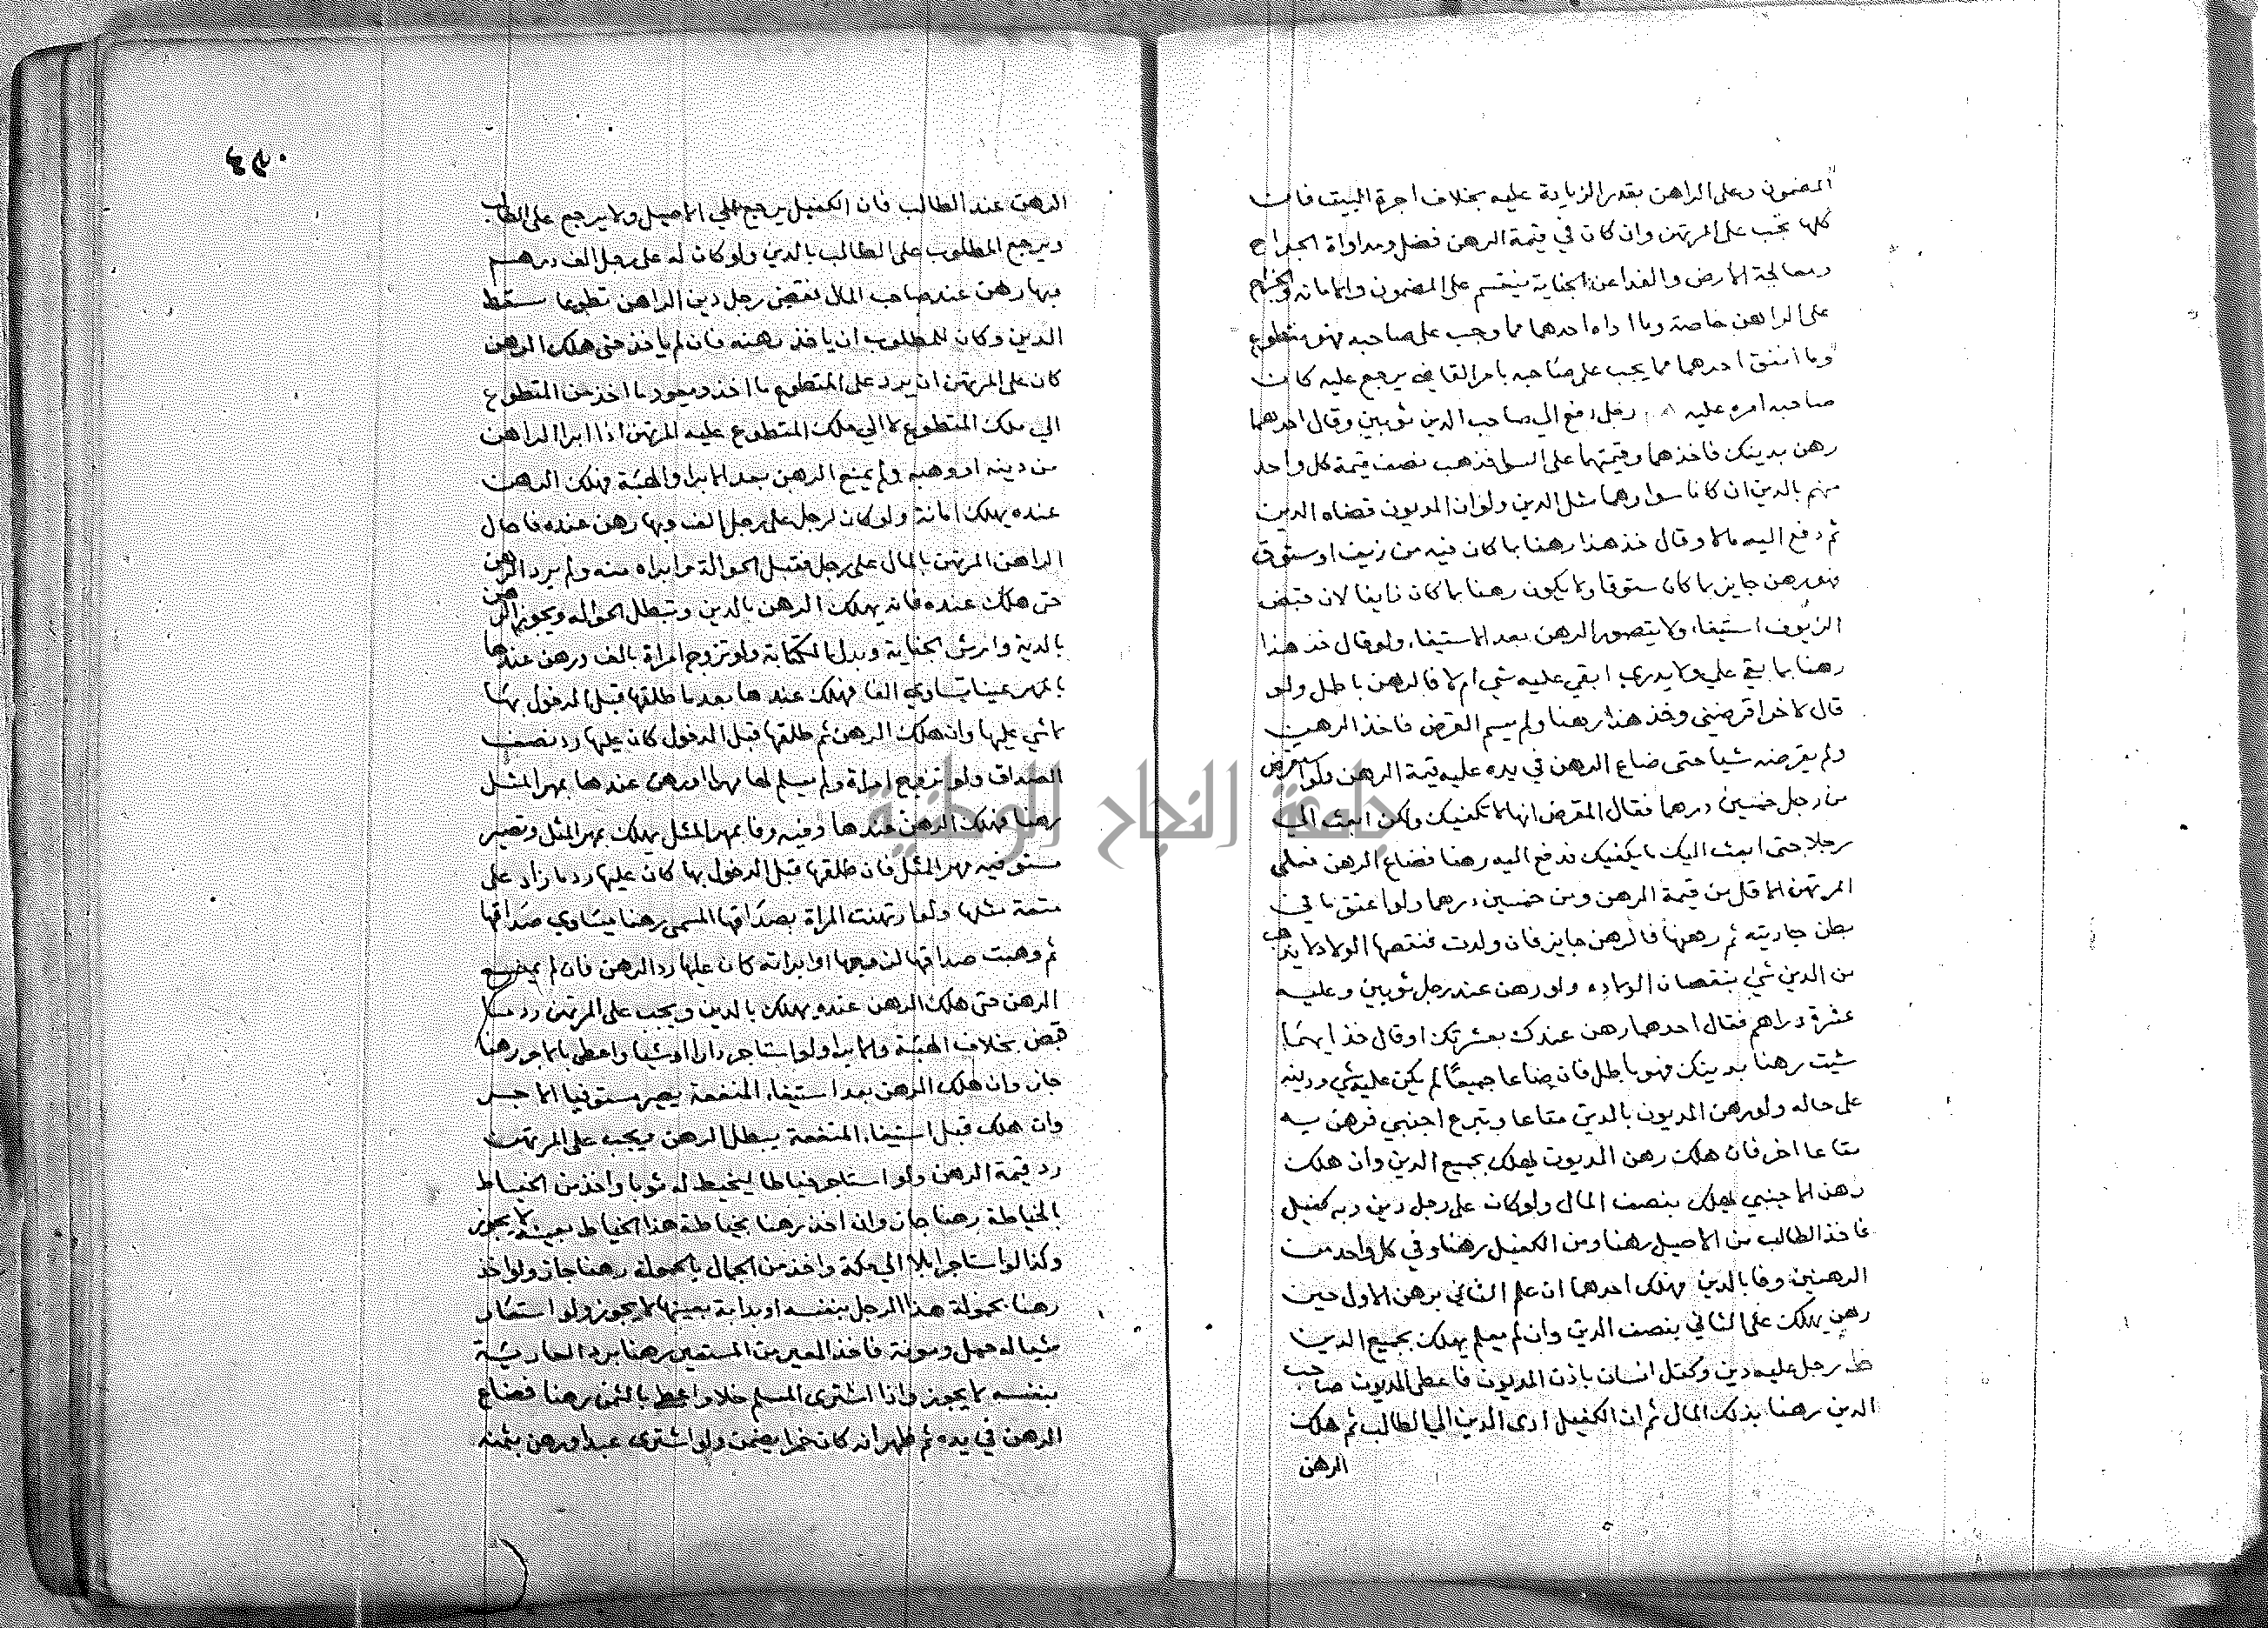 المضمون وعلى الراهن بقدر الزيادة عليه بخلاف اجرة البيت فان
كلها تجب على المرتهن وان كان في قيمة الرهن فضل ومداواة الجراح
ومعالجة الامراض والفدا عن الجناية ينقسم على المضمون والامانة والخراج
على الراهن خاصة وما اداه احدهما مما وجب على صاحبه فهو متطوع
وما انفق احدهما مما يجب على صاحبه بامر القاضي يرجع عليه كان
صاحبه امره عليه رجل دفع الي صاحب الدين ثوبين وقال احدهما
رهن بدينك فاخذهما وقيمتهما على السوا فذهب نصف قيمة كل واحد
منهم بالدين ان كانا سوا وهما مثل الدين ولو ان المديون قضاه الدين
ثم دفع اليه مالا وقال خذ هذا رهنا بما كان فيه من زيف او ستوق
فهو رهن جايز بما كان ستوقا ولا يكون رهنا بما كان زايفا لان قبض
الزيوف استيفا، ولا يتصور الرهن بعد الاستيفا، ولو قال خذ هذا
رهنا بما بقي علي ولا يدري ابقي عليه شي ام لا فالرهن باطل ولو
قال لاخر اقرضني وخذ هذا رهنا ولم يسم القرض فاخذ الرهن
ولم يقرضه شيا حتى ضاع الرهن في يده عليه قيمة الرهن ولو استقرض
من رجل خمسين درهما فقال المقرض انها لا تكفيك ولكن ابعث الي
رجلا حتى ابعث اليك ما يكفيك فدفع اليه رهنا فضاع الرهن فعلى
المرتهن الاقل من قيمة الرهن ومن خمسين درهما ولو اعتق ما في
بطن جاريته ثم رهنها فالرهن جايز فان ولدت فنقصها الولاد لا يذهب
من الدين شي بنقصان الولاده ولو رهن عند رجل ثوبين وعليه
عشرة دراهم فقال احدهما رهن عندك بعشرتك او قال خذ ايهما
شيت رهنا بدينك فهو باطل فان ضاعا جميعا لم يكن عليه شي ودينه
على حاله ولو رهن المديون بالدين متاعا وتبرع اجنبي فرهن به
متاعا اخر فان هلك رهن المديون يهلك بجميع الدين وان هلك
رهن الاجنبي يهلك بنصف المال ولو كان على رجل دين وبه كفيل
فاخذ الطالب من الاصيل رهنا ومن الكفيل رهنا وفي كل واحد من
الرهنين وفا بالدين فهلك احدهما ان علم الثاني برهن الاول حين
رهن يهلك على الثاني بنصف الدين وان لم يعلم يهلك بجميع الدين
رجل عليه دين وكفل انسان باذن المديون فاعطى المديون صاحب
الدين رهنا بذلك المال ثم ان الكفيل ادى الدين الي الطالب ثم هلك
الرهن
الرهن عند الطالب فان الكفيل يرجع على الاصيل ولا يرجع على الطالب
ويرجع المطلوب على الطالب بالدين ولو كان له على رجل الف درهم
بها رهن عند صاحب المال فقضى رجل دين الراهن تطوعا سقط
الدين وكان للمطلوب ان ياخذ رهنه فان لم ياخذ حتى هلك الرهن
كان على المرتهن ان يرد على المتطوع ما اخذ ويعود ما اخذ من المتطوع
الي ملك المتطوع لا الي ملك المتطوع عليه المرتهن اذا ابرا الراهن
من دينه او وهبه ولم يمنع الرهن بعد الابرا والهبة فهلك الرهن
عنده يهلك امانة ولو كان لرجل على رجل الف وبها رهن عنده فاحال
الراهن المرتهن بالمال على رجل فقبل الحوالة وابراه منه ولم يرد الرهن
حتى هلك عنده فانه يهلك الرهن بالدين وتبطل الحواله ويجوز الرهن
بالدية وارش الجناية وبدل الكتابة ولو تزوج امراة بالف ورهن عندها
بالمهر عينا يساوي الفا فهلك عندها بعد ما طلقها قبل الدخول بها
لا شي عليها وان هلك الرهن ثم طلقها قبل الدخول كان عليها رد نصف
الصداق ولو تزوج امراة ولم يسم لها مهرا ورهن عندها بمهر المثل
رهنا فهلك الرهن عندها وفيه وفا بمهر المثل يهلك بمهر المثل وتصير
مستوفيه مهر المثل فان طلقها قبل الدخول بها كان عليها رد ما زاد على
متعة مثلها ولو ارتهنت المراة بصداقها المسمى رهنا يساوي صداقها
ثم وهبت صداقها لزوجها او ابراته كان عليها رد الرهن فان لم يمنع
الرهن حتى هلك الرهن عنده يهلك بالدين ويجب على المرتهن رد ما
قبض بخلاف الهبة والابرا ولو استاجر دارا او شيا واعطى بالاجر رهنا
جاز وان هلك الرهن بعد استيفا، المنفعة يصير مستوفيا الاجر
وان هلك قبل استيفا، المنفعة يبطل الرهن ويجب على المرتهن
رد قيمة الرهن ولو استاجر خياطا ليخيط له ثوبا واخذ من الخياط
بالخياطة رهنا جاز وان اخذ رهنا بخياطة هذا الخياط بعينه لا يجوز
وكذا لو استاجر ابلا الي مكة واخذ من الجمال بالحمولة رهنا جاز ولو اخذ
رهنا بحمولة هذا الرجل بنفسه او بدابة بعينها لا يجوز ولو استعار
شيا له حمل ومونة فاخذ المعير من المستعير رهنا برد العارية
بنفسه لا يجوز واذا اشترى المسلم خلا واعطى بالثمن رهنا فضاع
الرهن في يده ثم ظهر انه كان خمرا يضمن ولو اشترى عبدا ورهن بثمنه
جامعة النجاح الوطنية